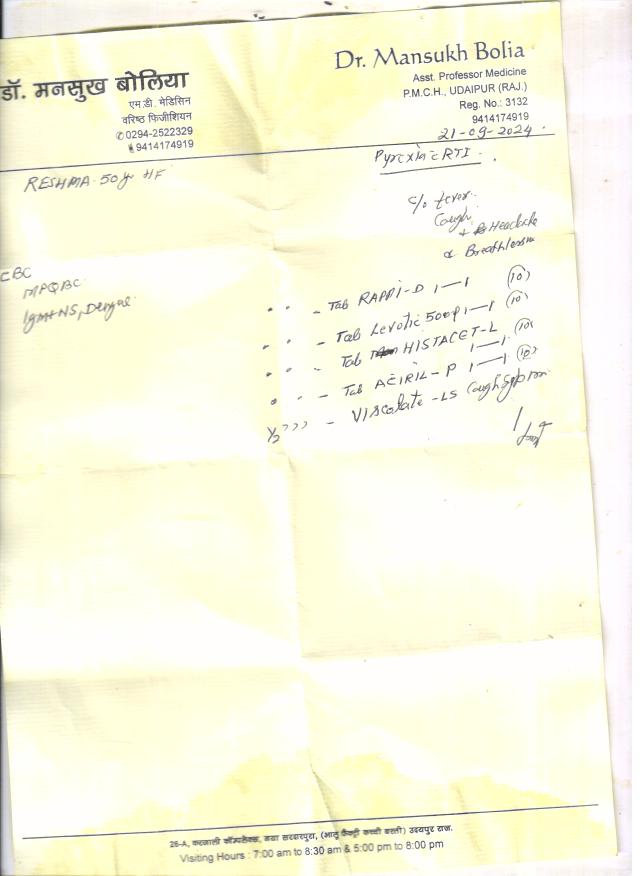 डॉ. मनसुख बोलिया
एम.डी. मेडिसिन
वरिष्ठ फिजीशियन
0294-2522329
9414174919
Dr. Mansukh Bolia
Asst. Professor Medicine
P.M.C.H., UDAIPUR (RAJ.)
Reg. No.: 3132
9414174919
21-09-2024
RESHMA 50y HF
Pyrexia c RTI
c/o fever
Cough
+ Headache
& Breathlessn
CBC
MPQBC
IgM+NS, Dengue
- Tab RAPPI-D 1—1 (10)
- Tab Levotic 500 1—1 (10)
- Tab HISTACET-L 1—1 (10)
- Tab ACIRIL-P 1—1 (10)
1/2 ,,, - Viscolate-LS Cough
26-A, करजाली कॉम्पलेक्स, नया सरदारपुरा, (आलू फैक्ट्री कच्ची बस्ती) उदयपुर राज.
Visiting Hours : 7:00 am to 8:30 am & 5:00 pm to 8:00 pm